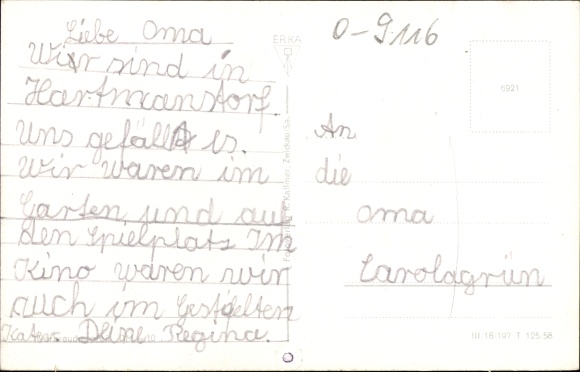 Liebe Oma
Wir sind in
Hartmanstorf.
Uns gefällt es.
Wir waren im
Garten und auf
den Spielplatz Im
Kino waren wir
auch im Gestifelten
Kater. Deine Regina.
ERKA
0-9116
6921
An
die
Oma
Carolagrün
III 18 197 T 125/58